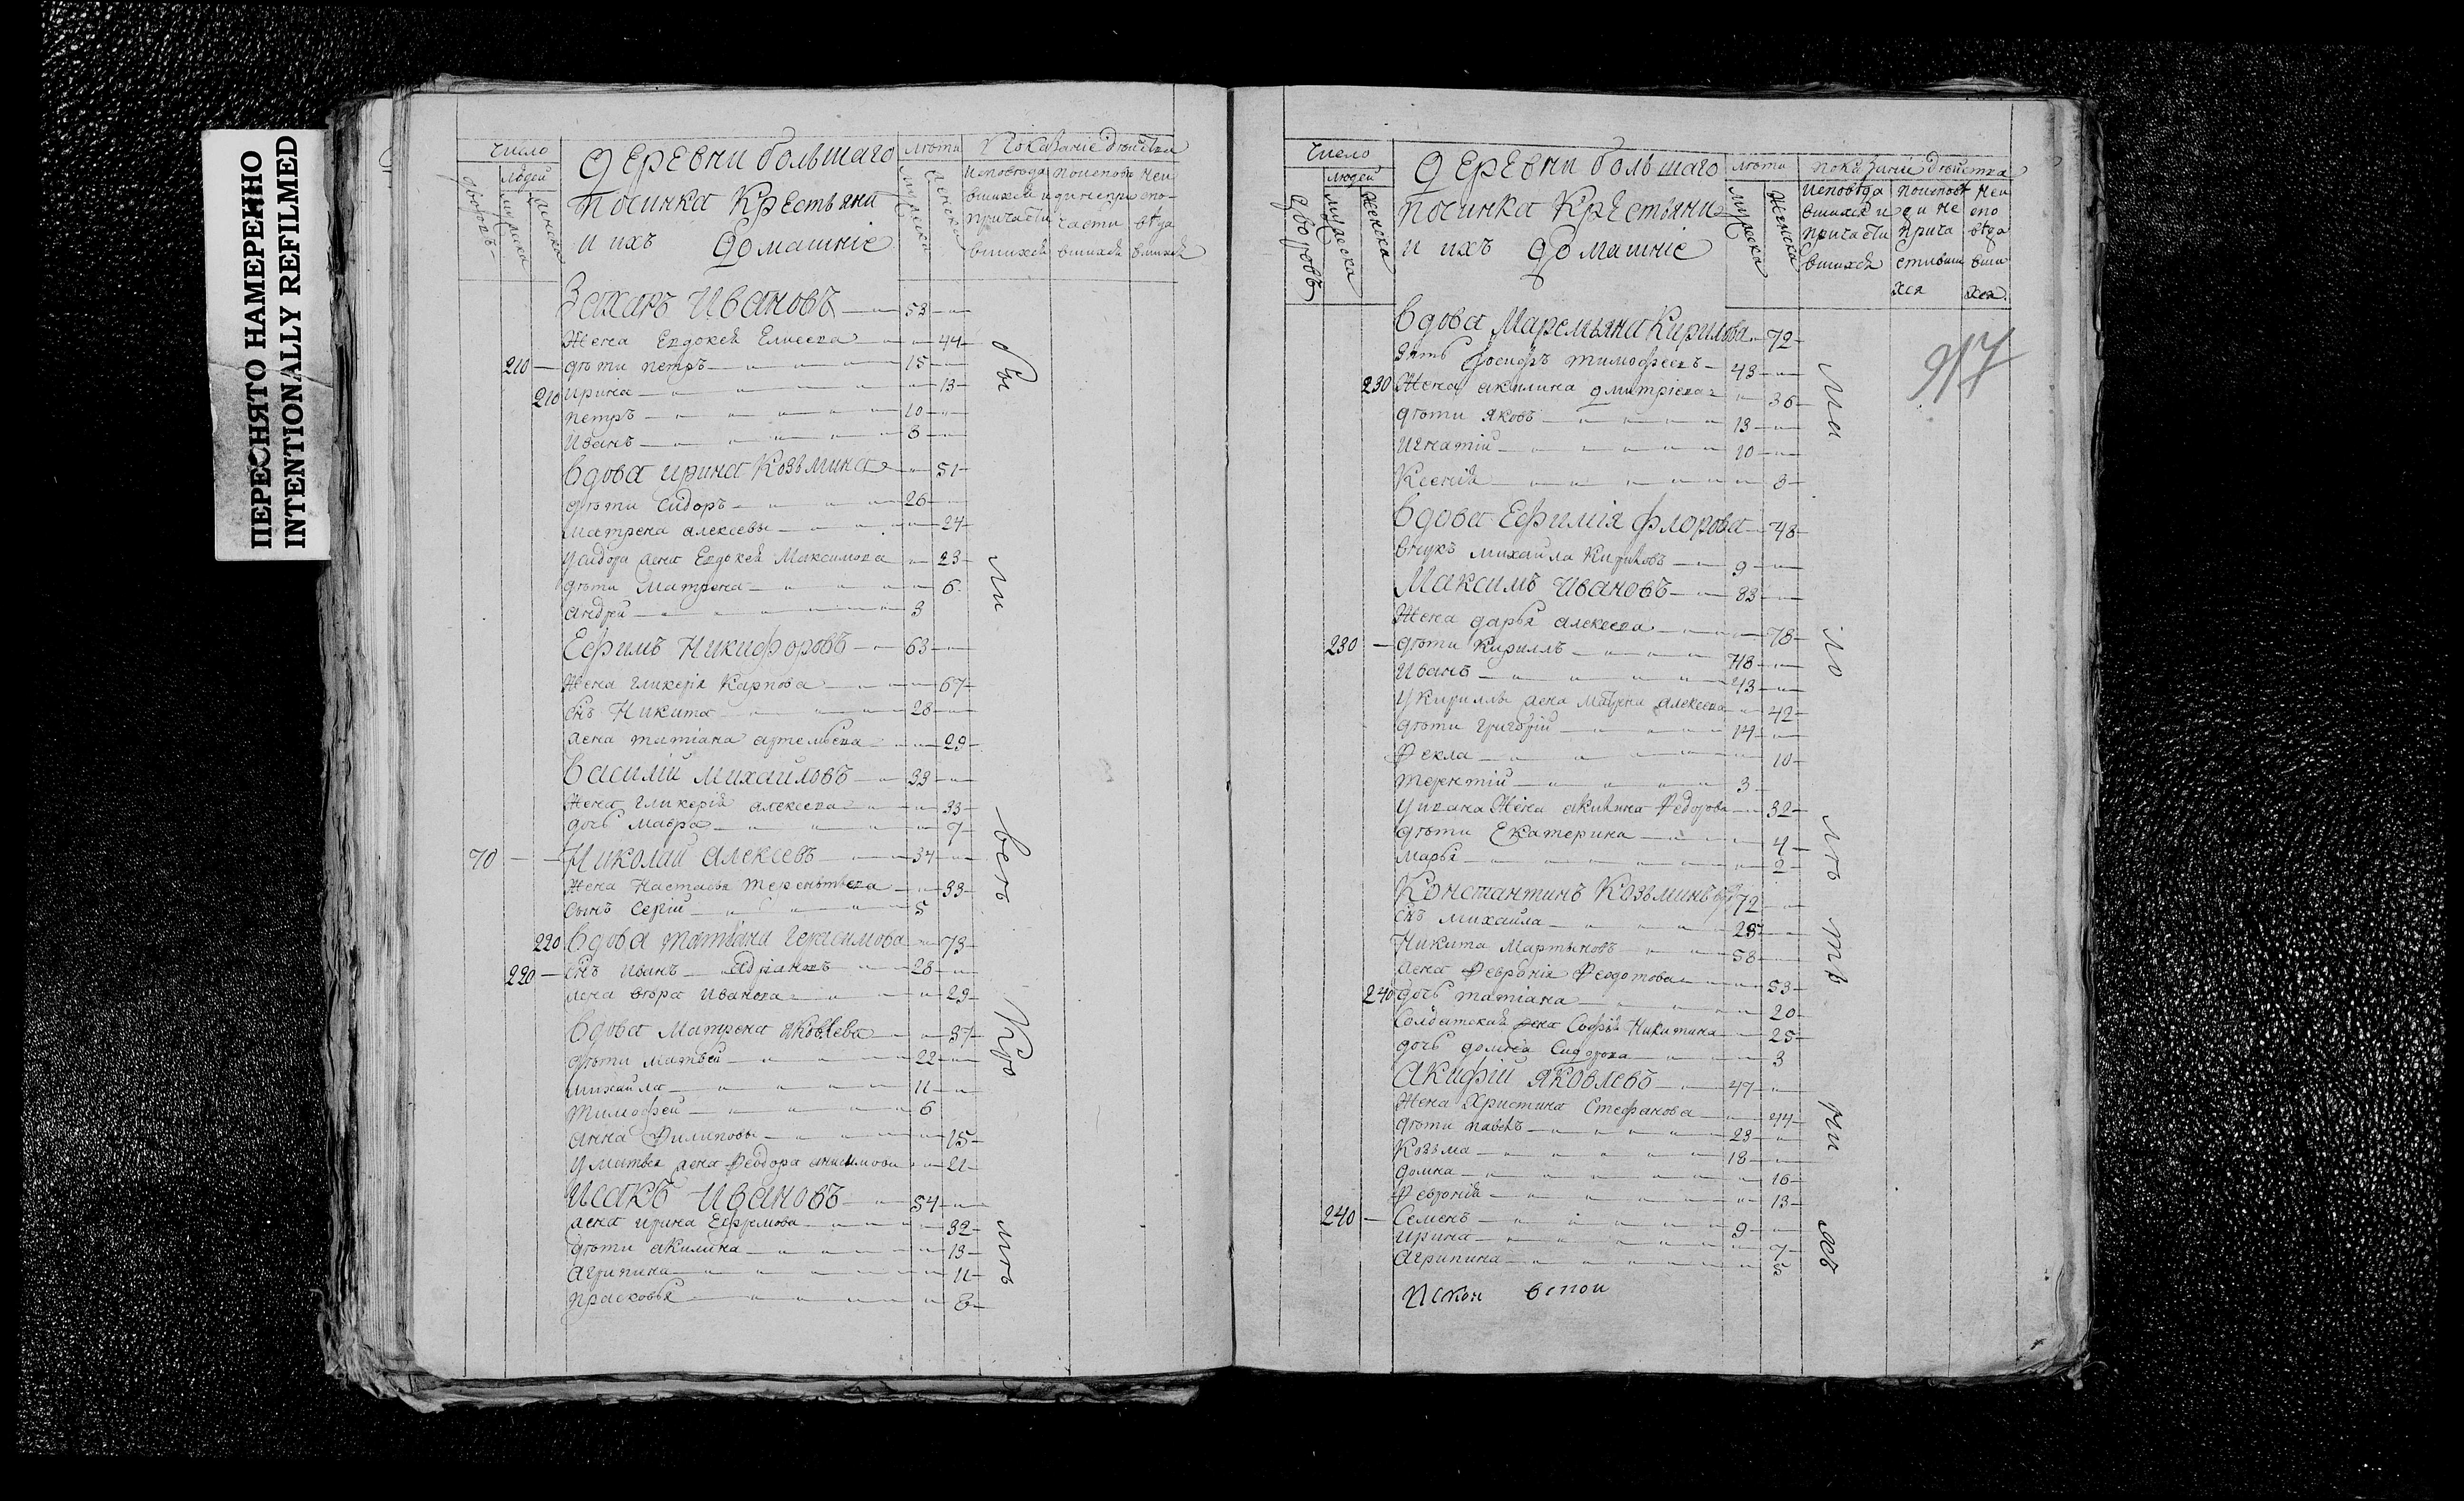 ПЕРЕСНЯТО НАМЕРЕННО
INTENTIONALLY REFILMED
Число
людей
дворовъ
мужеска
женска
Деревни большаго
Посинка Крестьяни
и ихъ Домашніе
лѣта
мужеска
женска
Показаніе действа
исповѣда
вшихся и
причасти
вшихся
поиспове
ди непри
части
вшихся
неи
спо-
вѣда
вшихся
Захаръ Ивановъ 53
Жена Евдокея Елисеева 44
210 дѣти петръ 15
210 ирина 13
петръ 10
Иванъ 8
Вдова ирина Козьмина 51
дѣти Сидоръ 26
матрена алексевы 24
у Сидора жена Евдокея Максимова 23
дѣти Матрена 6
андрей 3
Ефимъ Никифоровъ 63
Жена гликерія Карпова 67
снъ Никита 28
жена татіана артемьева 29
Василій михайловъ 33
Жена гликерія алексеева 33
дочь мавра 7
70 Николай алексеевъ 34
Жена Настасья терентьева 33
сынъ Сергій 5
220 Вдова татіана герасимова 73
220 снъ иванъ адріановъ 28
жена вѣра иванова 29
Вдова матрена яковлева 37
дѣти матвей 22
михайла 11
тимофей 6
анна филиповы 15
у матвея жена Феодора анисимова 21
Исакъ Ивановъ 54
жена ирина Ефремова 32
дѣти акилина 13
агрипина 11
прасковья 8
Бы
ли
всѣ
Кро
мѣ
Число
людей
дворовъ
мужеска
женска
Деревни большаго
посинка Крестьяни
и ихъ Домашніе
лѣта
мужеска
женска
показаніе действа
исповѣда
вшихся и
причасти
вшихся
поиспов
еди не
прича
стивши
хся
неи
спо
вѣда
вши
хся
917
Вдова Маремьяна Кирилова 72
Зять Іосифъ тимофеевъ 43
230 Жена акилина дмитріева 36
дѣти яковъ 13
игнатій 10
Ксенія 3
Вдова Ефимія флорова 48
внукъ михайла Кириловъ 9
Максимъ Ивановъ 83
Жена дарья алексеева 78
230 дѣти Кириллъ 48
Иванъ 43
у кириллы жена матрена алексеева 42
дѣти григорій 14
Фекла 10
терентій 3
у ивана жена акилина Федорова 32
дѣти Екатерина 4
марья 2
Константинъ Козьминъ 72
снъ михайла 28
Никита Мартыновъ 58
жена Февронія Феодотова 53
240 дочь татіана 20
солдатская жена Софья Никитина 25
дочь домна Сидорова 3
Акифій яковлевъ 47
Жена Христина Стефанова 44
дѣти павелъ 23
Козьма 18
домна 16
Февронія 13
240 Семенъ 9
ирина 7
агрипина 5
ма
ло
лѣ
тв
ни
хъ